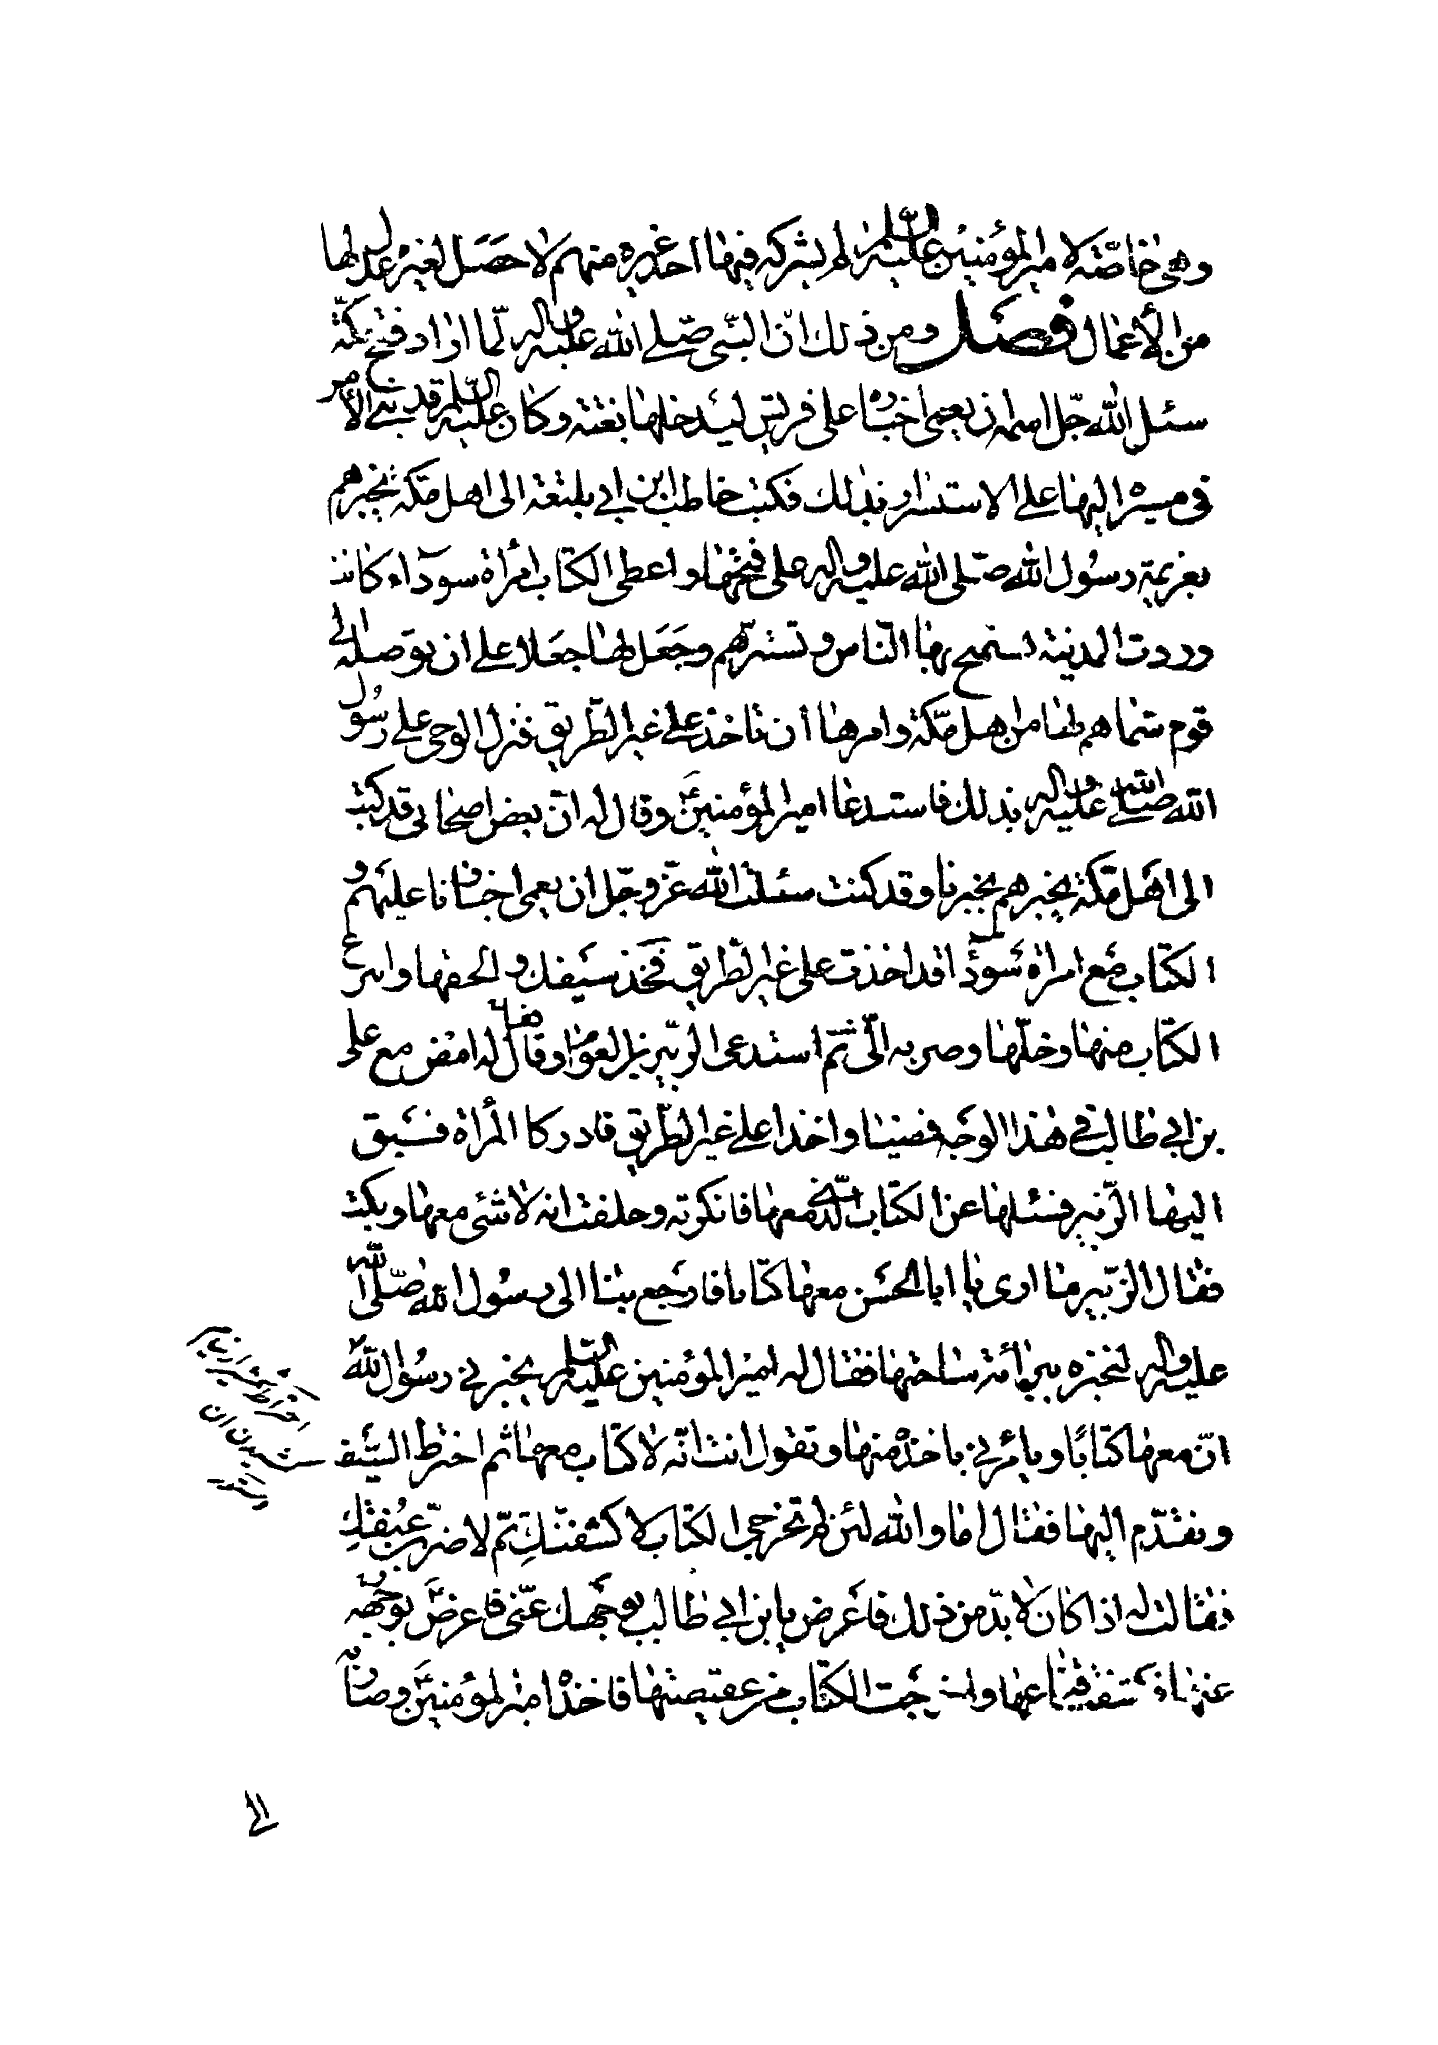 وهى خاصّته لامير المؤمنين عليه السلم لم يشركه فيها احد غيره منهم ولا حصل لغيره عدل لها
من الأعمال فصل ومن ذلك انّ النبّى صلّے الله عليه واله لمّا اراد فتح مكّة
سئل الله جلّ اسمه ان يعمى اخباره على قريش ليدخلها بغتة وكان عليه السلم قد بنے الأمر
فى مسيره اليها على الاستسرار بذلك فكتب حاطب ابن ابي بلتعة الى اهل مكة يخبرهم
بعزيمة رسول الله صلّى الله عليه واله على فتحها واعطى الكتاب امرأة سوداء كانت
وردت المدينة تستميح بها النّاس وتستبرّهم وجعل لها جعلا على ان توصله الى
قوم سمّاهم لها من اهل مكّة وامرها ان تاخذ على غير الطّريق فنزل الوحى على رسول
الله صلّى الله عليه واله بذلك فاستدعا امير المؤمنين ع وقال له انّ بعض اصحابى قد كتب
الى اهل مكّة يخبرهم بخبرنا وقد كنت سئلت الله عزّ وجلّ ان يعمى اخبارنا عليهم و
الكتاب مع امراة سوداء قد اخذت على غير الطّريق فخذ سيفك والحقها وانزع
الكتاب منها وخلّها وصر به الىّ ثمّ استدعى الزّبير بن العوام وقال له امض مع على
بن ابي طالب في هذا الوجه فمضيا واخذا على غير الطّريق فادركا المرأة فسبق
اليها الزّبير فسئلها عن الكتاب الّذى معها فانكرته وحلفت انه لا شئى معها وبكت
فقال الزّبير ما ارى يا ابا الحسن معها كتابا فارجع بنا الى رسول الله صلّى الله
عليه واله لنخبره ببرائة ساحتها فقال له امير المؤمنين عليه السلم يخبرني رسول الله
انّ معها كتابًا ويامرني باخذه منها وتقول انت انّه لا كتاب معها ثم اخترط السّيف
وتقدّم اليها فقال اما والله لئن لم تخرجى الكتاب لاكشفنّكِ ثمّ لاضربنّ عنقكِ
فقالت له اذا كان لا بدّ من ذلك فاعرض يا بن ابي طالب بوجهك عنّى فاعرض بوجهه
عنها فكشفت قناعها واخرجت الكتاب من عقيصتها فاخذه امير المؤمنين وصار به
الى